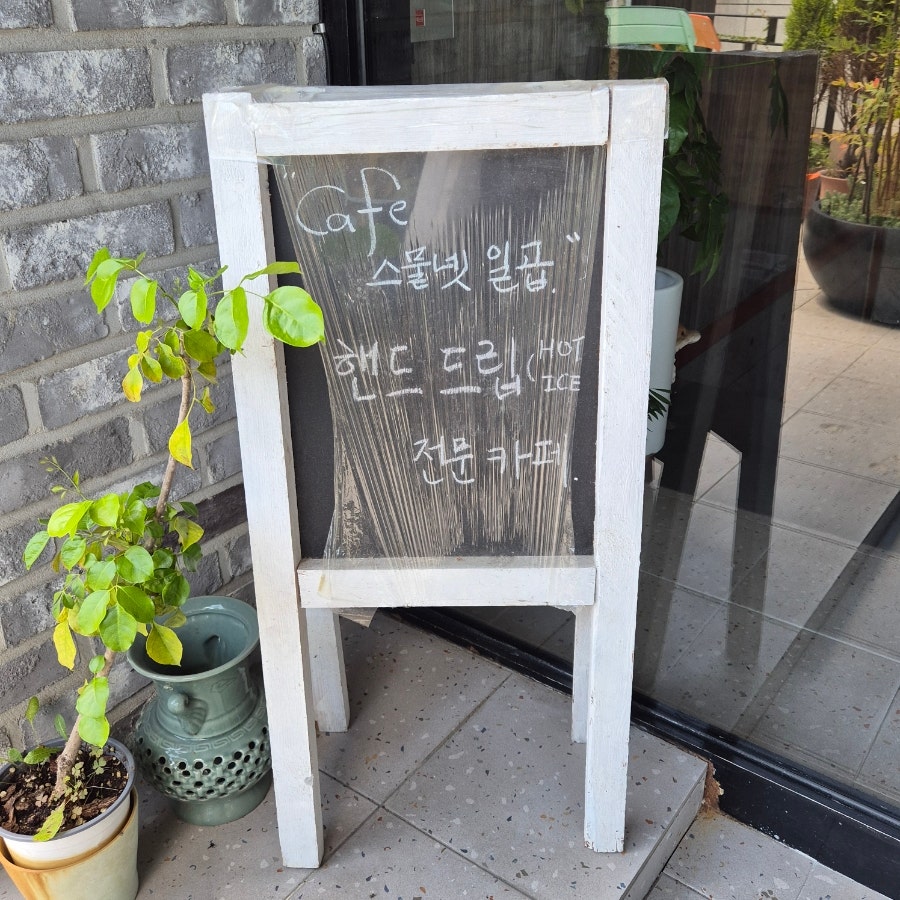 "Cafe
스물넷 일곱."
핸드 드립(HOT
ICE
전문 카페